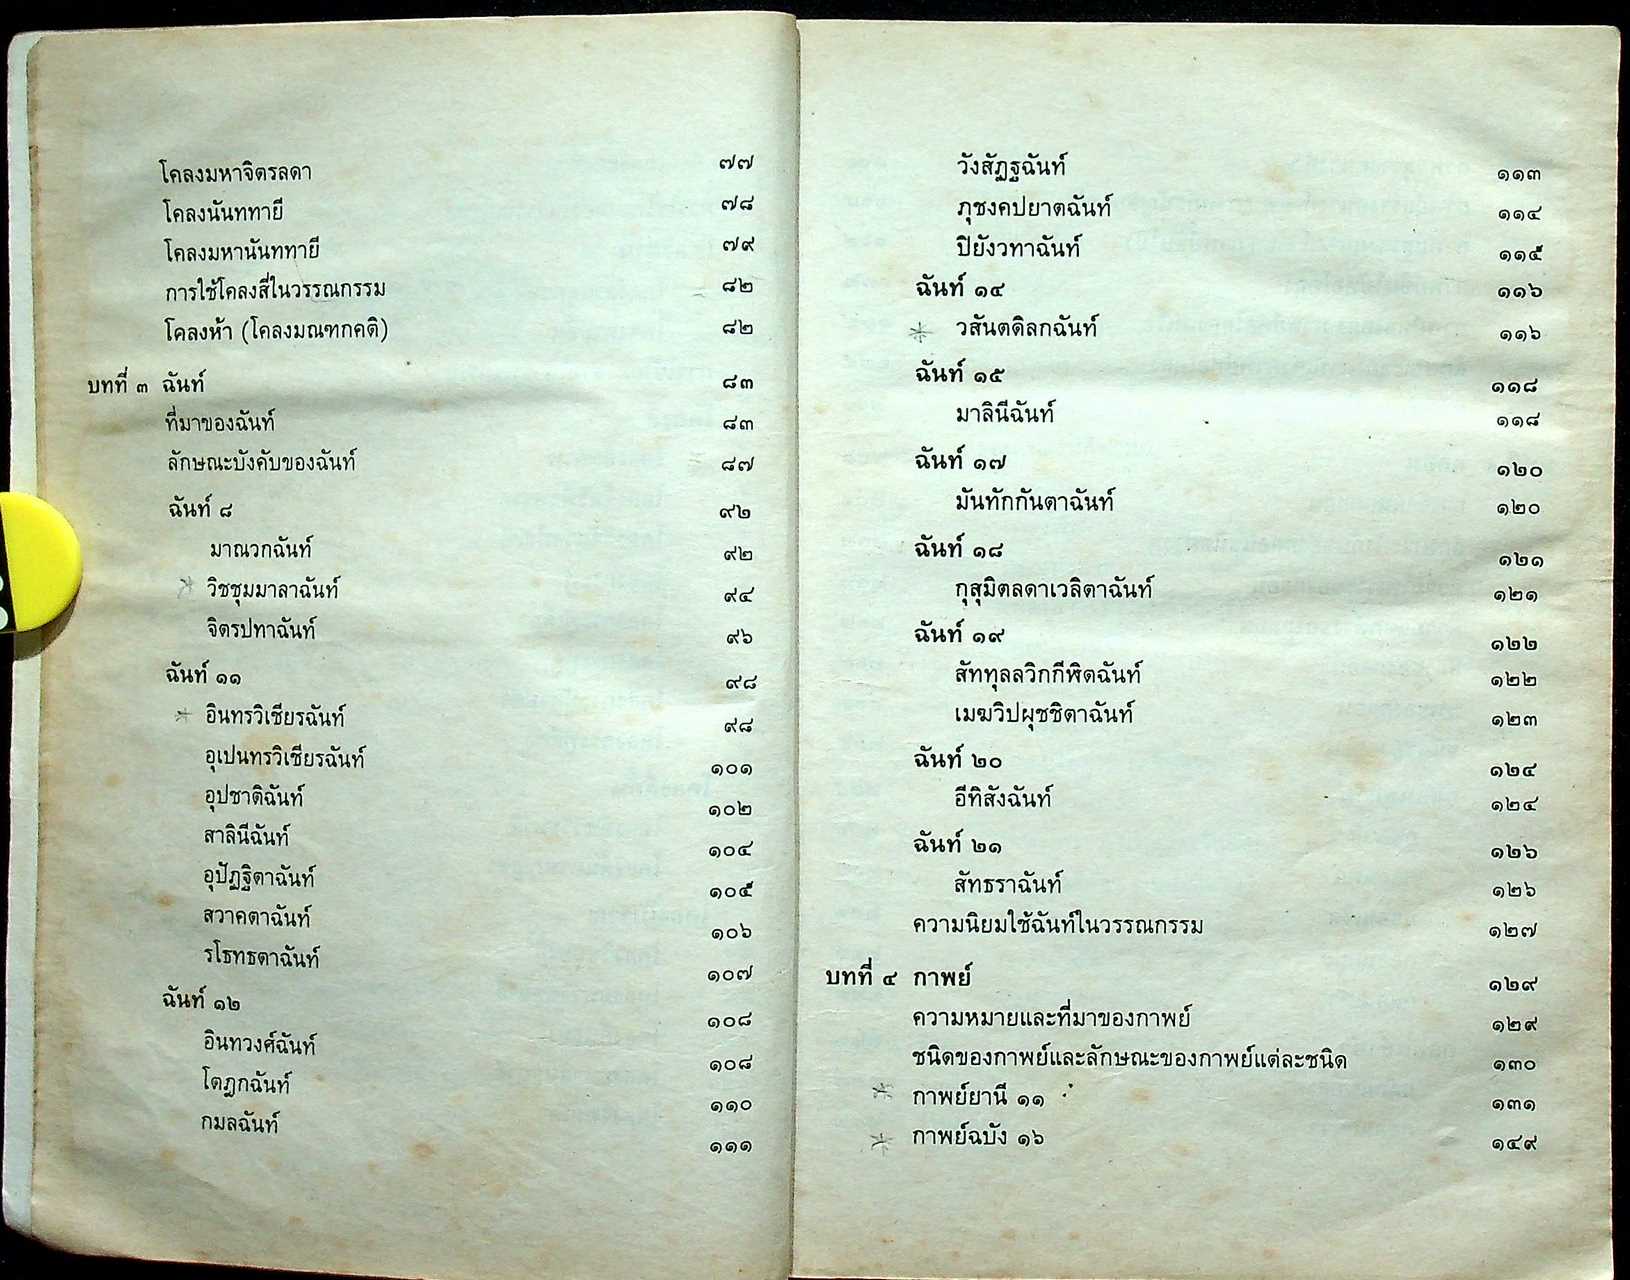 โคลงมหาจิตรลดา ๗๗
โคลงนันททายี ๗๘
โคลงมหานันททายี ๗๙
การใช้โคลงสี่ในวรรณกรรม ๘๒
โคลงห้า (โคลงมณฑกคติ) ๘๒
บทที่ ๓ ฉันท์ ๘๓
ที่มาของฉันท์ ๘๓
ลักษณะบังคับของฉันท์ ๘๗
ฉันท์ ๘ ๙๒
มาณวกฉันท์ ๙๒
* วิชชุมมาลาฉันท์ ๙๔
จิตรปทาฉันท์ ๙๖
ฉันท์ ๑๑ ๙๘
* อินทรวิเชียรฉันท์ ๙๘
อุเปนทรวิเชียรฉันท์ ๑๐๑
อุปชาติฉันท์ ๑๐๒
สาลินีฉันท์ ๑๐๔
อุปัฏฐิตาฉันท์ ๑๐๕
สวาคตาฉันท์ ๑๐๖
รโธทธตาฉันท์ ๑๐๗
ฉันท์ ๑๒ ๑๐๘
อินทวงศ์ฉันท์ ๑๐๘
โตฎกฉันท์ ๑๑๐
กมลฉันท์ ๑๑๑
วังสัฏฐฉันท์ ๑๑๓
ภุชงคปยาตฉันท์ ๑๑๔
ปิยังวทาฉันท์ ๑๑๕
ฉันท์ ๑๔ ๑๑๖
* วสันตดิลกฉันท์ ๑๑๖
ฉันท์ ๑๕ ๑๑๘
มาลินีฉันท์ ๑๑๘
ฉันท์ ๑๗ ๑๒๐
มันทักกันตาฉันท์ ๑๒๐
ฉันท์ ๑๘ ๑๒๑
กุสุมิตลดาเวลิตาฉันท์ ๑๒๑
ฉันท์ ๑๙ ๑๒๒
สัททุลลวิกกีฬิตฉันท์ ๑๒๒
เมฆวิปผุชชิตาฉันท์ ๑๒๓
ฉันท์ ๒๐ ๑๒๔
อีทิสังฉันท์ ๑๒๔
ฉันท์ ๒๑ ๑๒๖
สัทธราฉันท์ ๑๒๖
ความนิยมใช้ฉันท์ในวรรณกรรม ๑๒๗
บทที่ ๔ กาพย์ ๑๒๙
ความหมายและที่มาของกาพย์ ๑๒๙
ชนิดของกาพย์และลักษณะของกาพย์แต่ละชนิด ๑๓๐
* กาพย์ยานี ๑๑ ๑๓๑
* กาพย์ฉบัง ๑๖ ๑๔๙